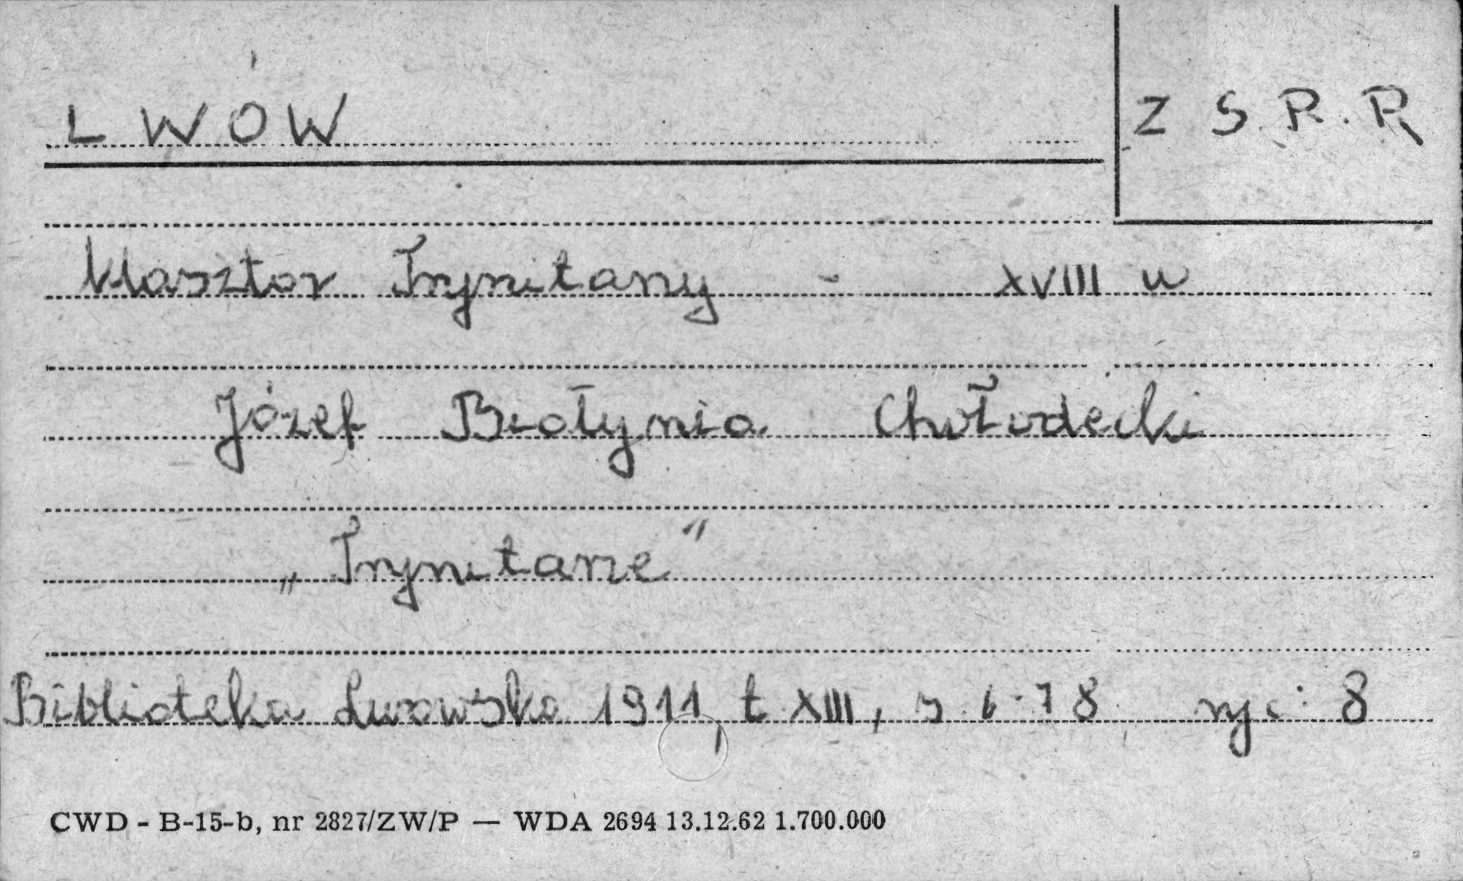 LWÓW
Z S.R.R
Klasztor Trynitarzy - XVIII w
Józef Białynia Chołodecki
„Trynitarze"
Biblioteka Lwowska 1911, t XIII, s 6-78 ryc: 8
CWD - B-15-b, nr 2827/ZW/P — WDA 2694 13.12.62 1.700.000